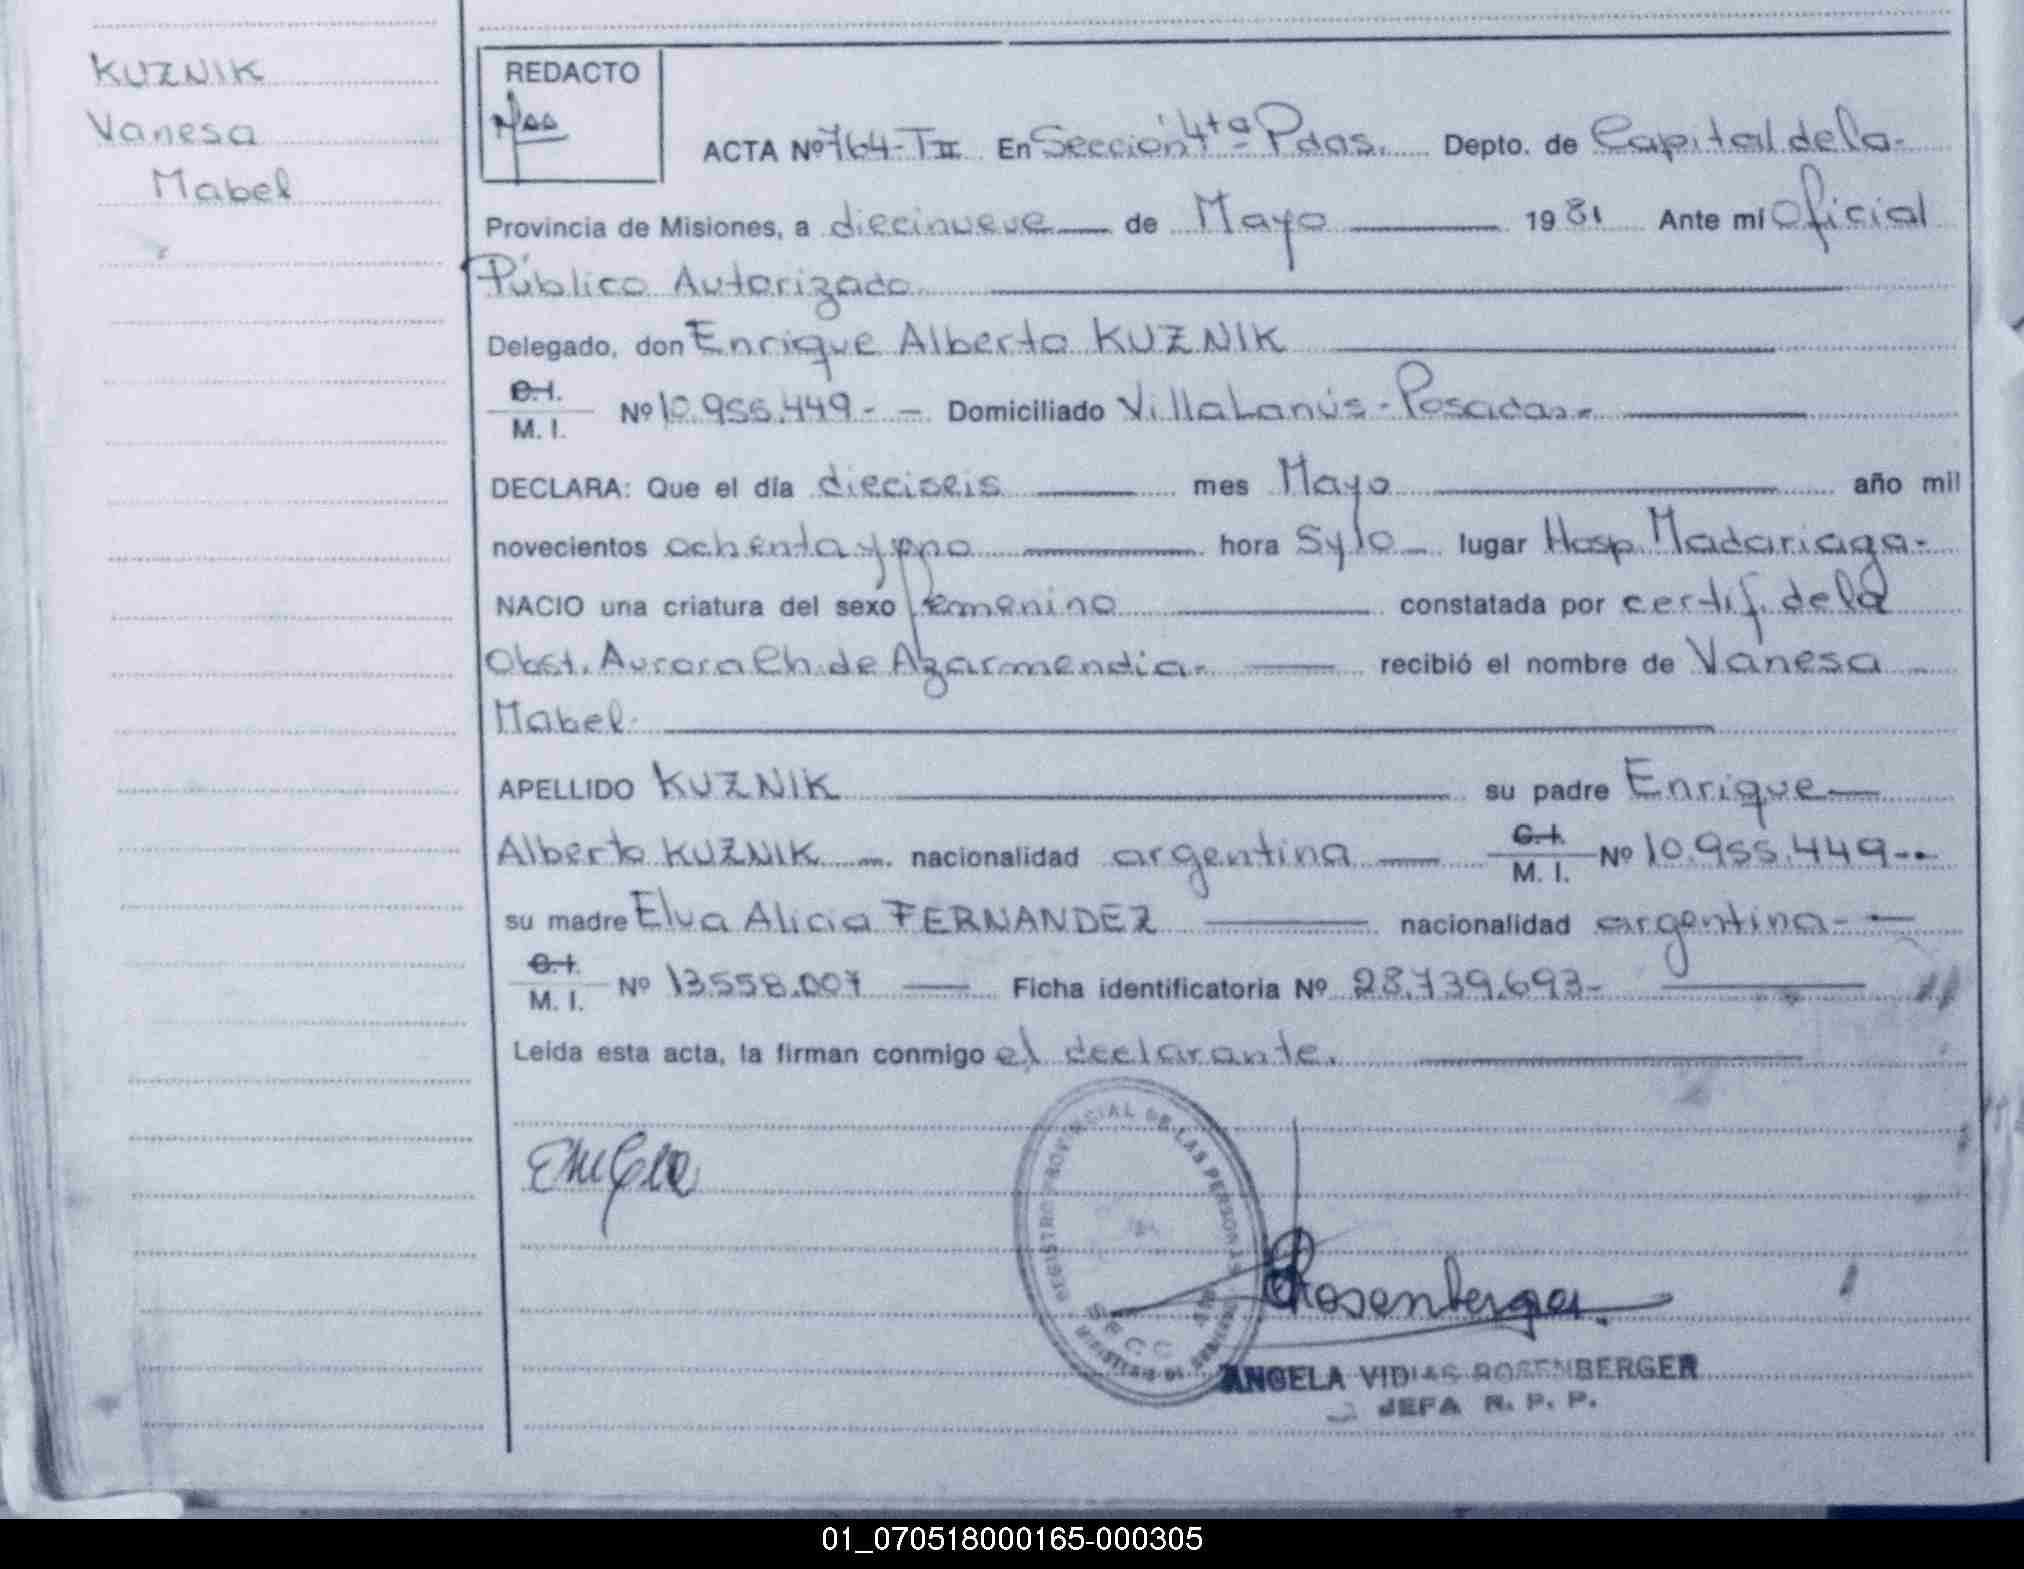 KUZNIK
Vanesa
Mabel
REDACTO
ACTA Nº 764-TII En Sección 4ta Pdas. Depto. de Capital de la
Provincia de Misiones, a diecinueve de Mayo 1981 Ante mí Oficial
Público Autorizado
Delegado, don Enrique Alberto KUZNIK
C.I.
M. I. Nº 10.955.449 - - Domiciliado Villa Lanús - Posadas -
DECLARA: Que el día dieciseis mes Mayo año mil
novecientos ochenta y uno hora 5 y 10 lugar Hosp. Madariaga -
NACIO una criatura del sexo femenino constatada por certif. de la
Obst. Aurora Ch. de Azarmendia - recibió el nombre de Vanesa
Mabel -
APELLIDO KUZNIK su padre Enrique
Alberto KUZNIK nacionalidad argentina C.I. M. I. Nº 10.955.449 --
su madre Elva Alicia FERNANDEZ nacionalidad argentina -
C.I.
M. I. Nº 13.558.007 Ficha identificatoria Nº 28.739.693 -
Leída esta acta, la firman conmigo el declarante.
REGISTRO PROVINCIAL DE LAS PERSONAS
SECC. 4ta
Rosenberger
ANGELA VIDIAS ROSENBERGER
JEFA R. P. P.
01_070518000165-000305